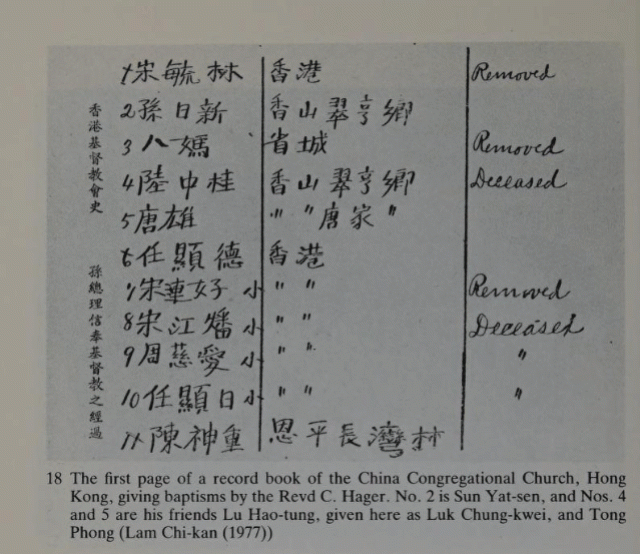 香港基督教會史
孫總理信奉基督教之經過
1 宋毓林 香港 Removed
2 孫日新 香山翠亨鄉
3 八媽 省城 Removed
4 陸中桂 香山翠亨鄉 Deceased
5 唐雄 〃 〃 唐家 〃
6 任顯德 香港
7 宋華好 小 〃 〃 Removed
8 宋江燔 小 〃 〃 Deceased
9 周慈愛 小 〃 〃 〃
10 任顯日 小 〃 〃 〃
11 陳神重 恩平長灣林
18 The first page of a record book of the China Congregational Church, Hong
Kong, giving baptisms by the Revd C. Hager. No. 2 is Sun Yat-sen, and Nos. 4
and 5 are his friends Lu Hao-tung, given here as Luk Chung-kwei, and Tong
Phong (Lam Chi-kan (1977))